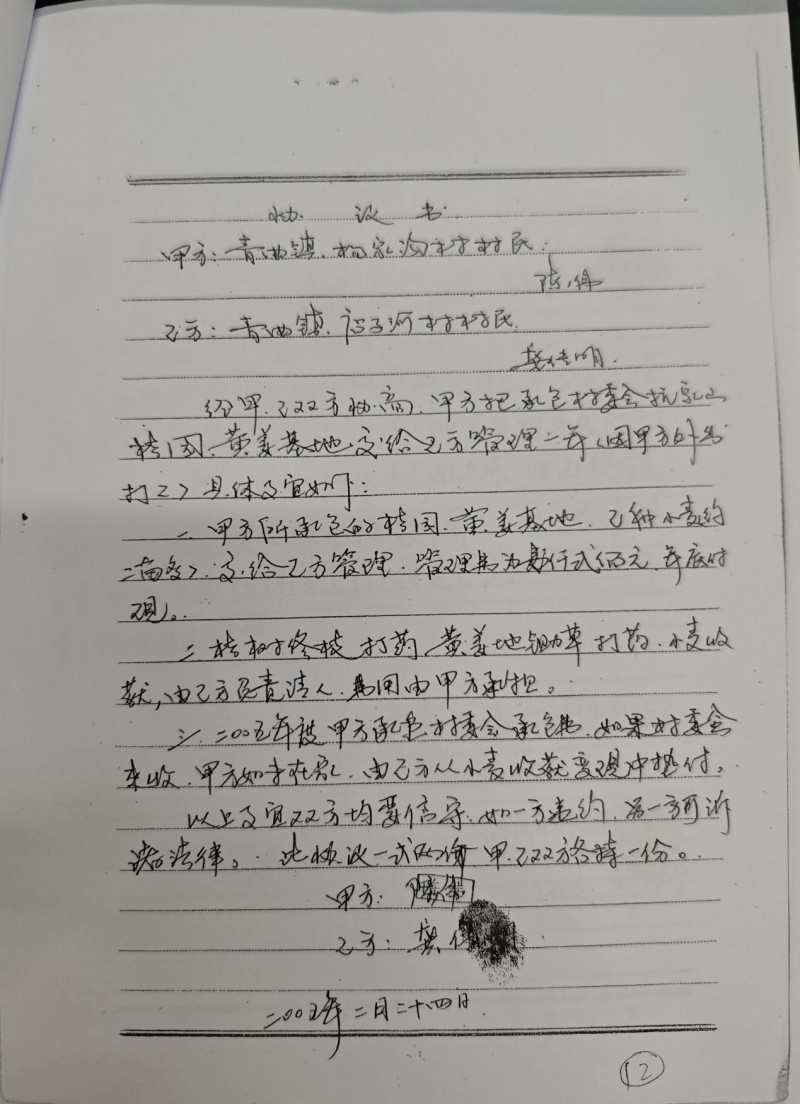 协 议 书
甲方：青曲镇、杨家沟村村民：
陈伟
乙方：青曲镇、 河村村民.
樊传明.
经甲、乙双方协商、甲方把承包村委会 家山
桔园、黄姜基地交给乙方管理一年（因甲方外出
打工）具体事宜如下：
一、甲方所承包的桔园、黄姜基地、已种小麦约
二亩多）、交给乙方管理、管理费为 仟贰佰元、年底付
现。
二、桔树修枝打药、黄姜地锄草打药、小麦收
获，由乙方负责请人、费用由甲方承担。
三、二00五年度甲方承包村委会承包费、如果村委会
来收、甲方如不在家、由乙方从小麦收获变现中垫付。
以上事宜双方均要信守、如一方违约、另一方可诉
诸法律。此协议一式两份甲、乙双方各持一份。
甲方：陈伟
乙方：樊传
二00五年二月二十四日
12